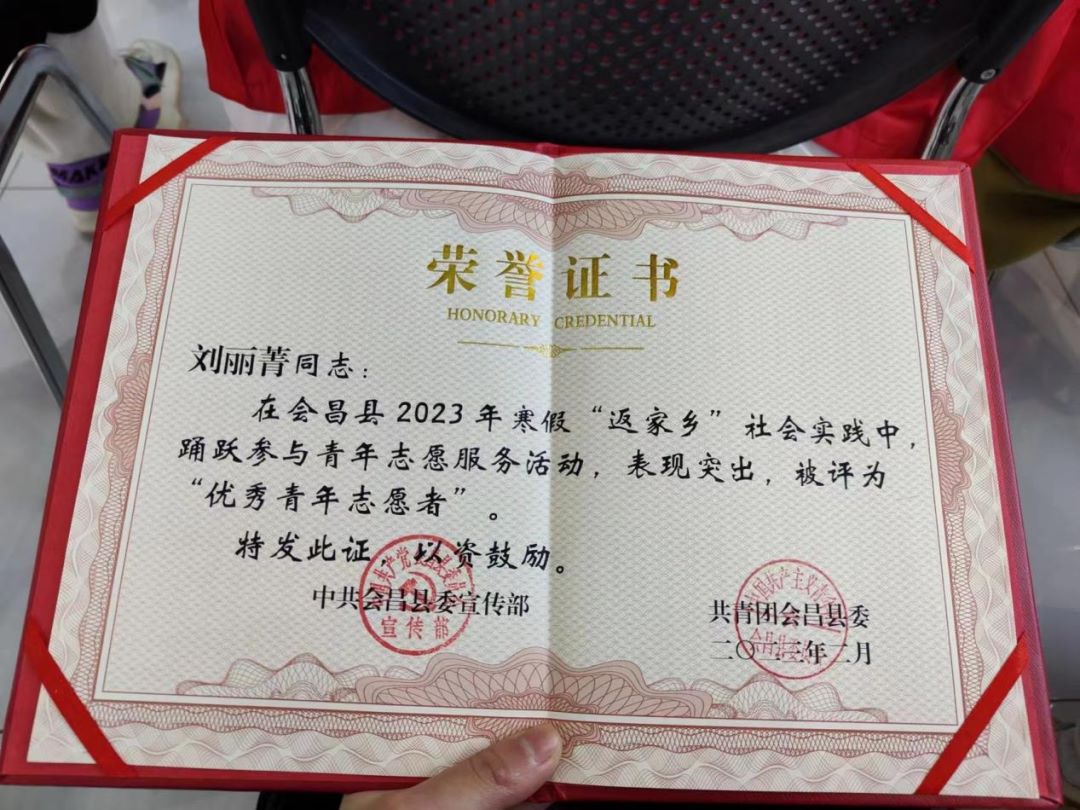 荣誉证书
HONORARY CREDENTIAL
刘丽菁同志：
在会昌县2023年寒假“返家乡”社会实践中，
踊跃参与青年志愿服务活动，表现突出，被评为
“优秀青年志愿者”。
特发此证，以资鼓励。
中共会昌县委宣传部
宣传部
共青团会昌县委
二〇二三年二月
MAK